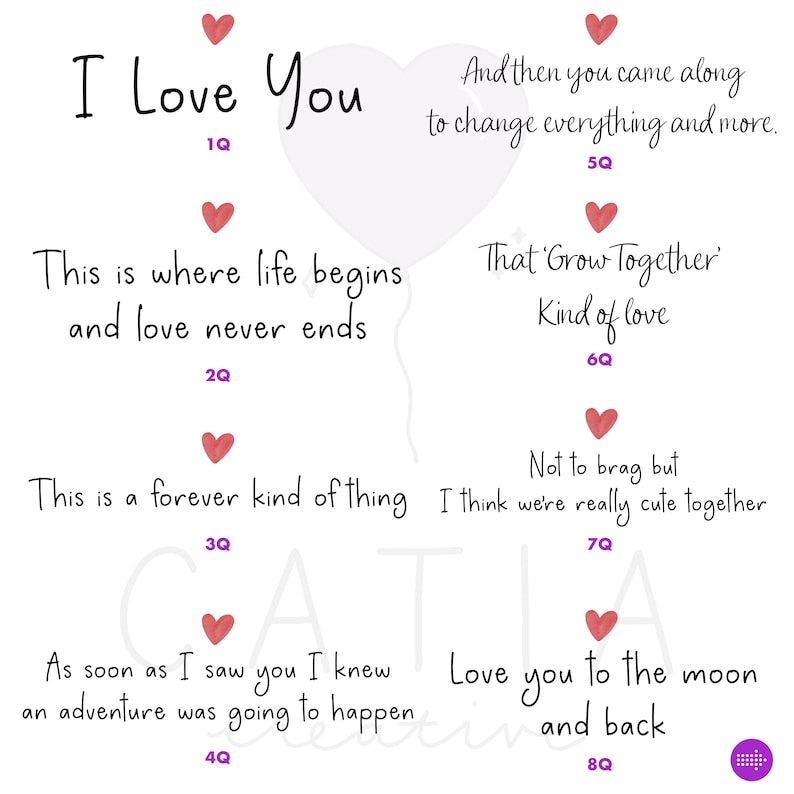 I Love You
1Q
This is where life begins
and love never ends
2Q
This is a forever kind of thing
3Q
As soon as I saw you I knew
an adventure was going to happen
4Q
And then you came along
to change everything and more.
5Q
That 'Grow Together'
Kind of love
6Q
Not to brag but
I think we're really cute together
7Q
Love you to the moon
and back
8Q
CATIA
creative